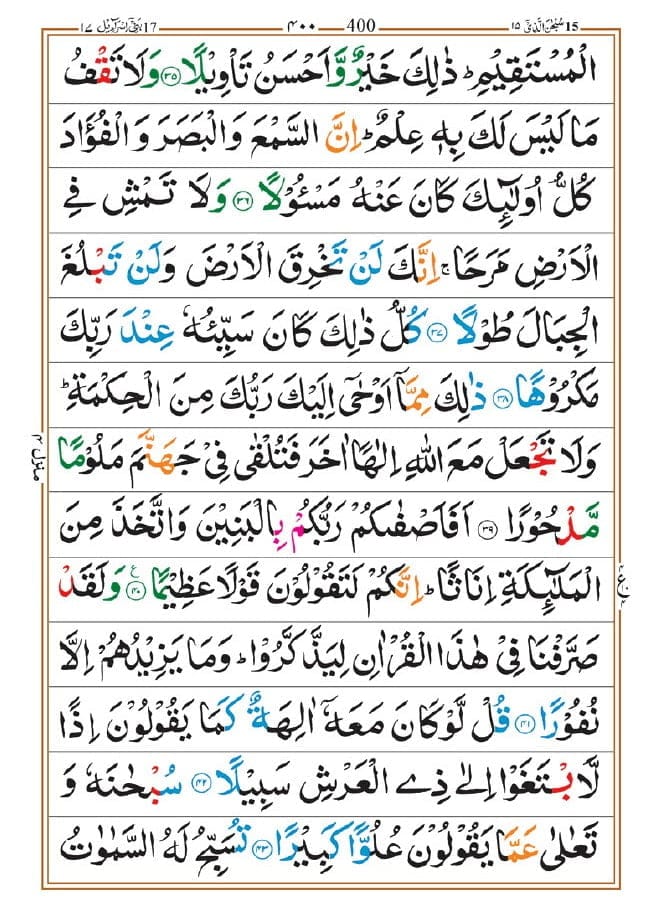 17 بنی اسرآءیل ۱۷ 400 ۴۰۰ 15 سُبْحٰنَ الَّذِیْۤ ۱۵
الْمُسْتَقِیْمِ ؕ ذٰلِكَ خَیْرٌ وَّ اَحْسَنُ تَاْوِیْلًا ﴿۳۵﴾ وَ لَا تَقْفُ
مَا لَیْسَ لَكَ بِهٖ عِلْمٌ ؕ اِنَّ السَّمْعَ وَ الْبَصَرَ وَ الْفُؤَادَ
كُلُّ اُولٰٓىِٕكَ كَانَ عَنْهُ مَسْـُٔوْلًا ﴿۳۶﴾ وَ لَا تَمْشِ فِی
الْاَرْضِ مَرَحًا ۚ اِنَّكَ لَنْ تَخْرِقَ الْاَرْضَ وَ لَنْ تَبْلُغَ
الْجِبَالَ طُوْلًا ﴿۳۷﴾ كُلُّ ذٰلِكَ كَانَ سَیِّئُهٗ عِنْدَ رَبِّكَ
مَكْرُوْهًا ﴿۳۸﴾ ذٰلِكَ مِمَّاۤ اَوْحٰۤی اِلَیْكَ رَبُّكَ مِنَ الْحِكْمَةِ ؕ
وَ لَا تَجْعَلْ مَعَ اللّٰهِ اِلٰهًا اٰخَرَ فَتُلْقٰی فِیْ جَهَنَّمَ مَلُوْمًا
منزل ۴
مَّدْحُوْرًا ﴿۳۹﴾ اَفَاَصْفٰىكُمْ رَبُّكُمْ بِالْبَنِیْنَ وَ اتَّخَذَ مِنَ
الْمَلٰٓىِٕكَةِ اِنَاثًا ؕ اِنَّكُمْ لَتَقُوْلُوْنَ قَوْلًا عَظِیْمًا ﴿۴۰﴾ ع وَ لَقَدْ
صَرَّفْنَا فِیْ هٰذَا الْقُرْاٰنِ لِیَذَّكَّرُوْا ؕ وَ مَا یَزِیْدُهُمْ اِلَّا
نُفُوْرًا ﴿۴۱﴾ قُلْ لَّوْ كَانَ مَعَهٗۤ اٰلِهَةٌ كَمَا یَقُوْلُوْنَ اِذًا
لَّابْتَغَوْا اِلٰی ذِی الْعَرْشِ سَبِیْلًا ﴿۴۲﴾ سُبْحٰنَهٗ وَ
تَعٰلٰی عَمَّا یَقُوْلُوْنَ عُلُوًّا كَبِیْرًا ﴿۴۳﴾ تُسَبِّحُ لَهُ السَّمٰوٰتُ